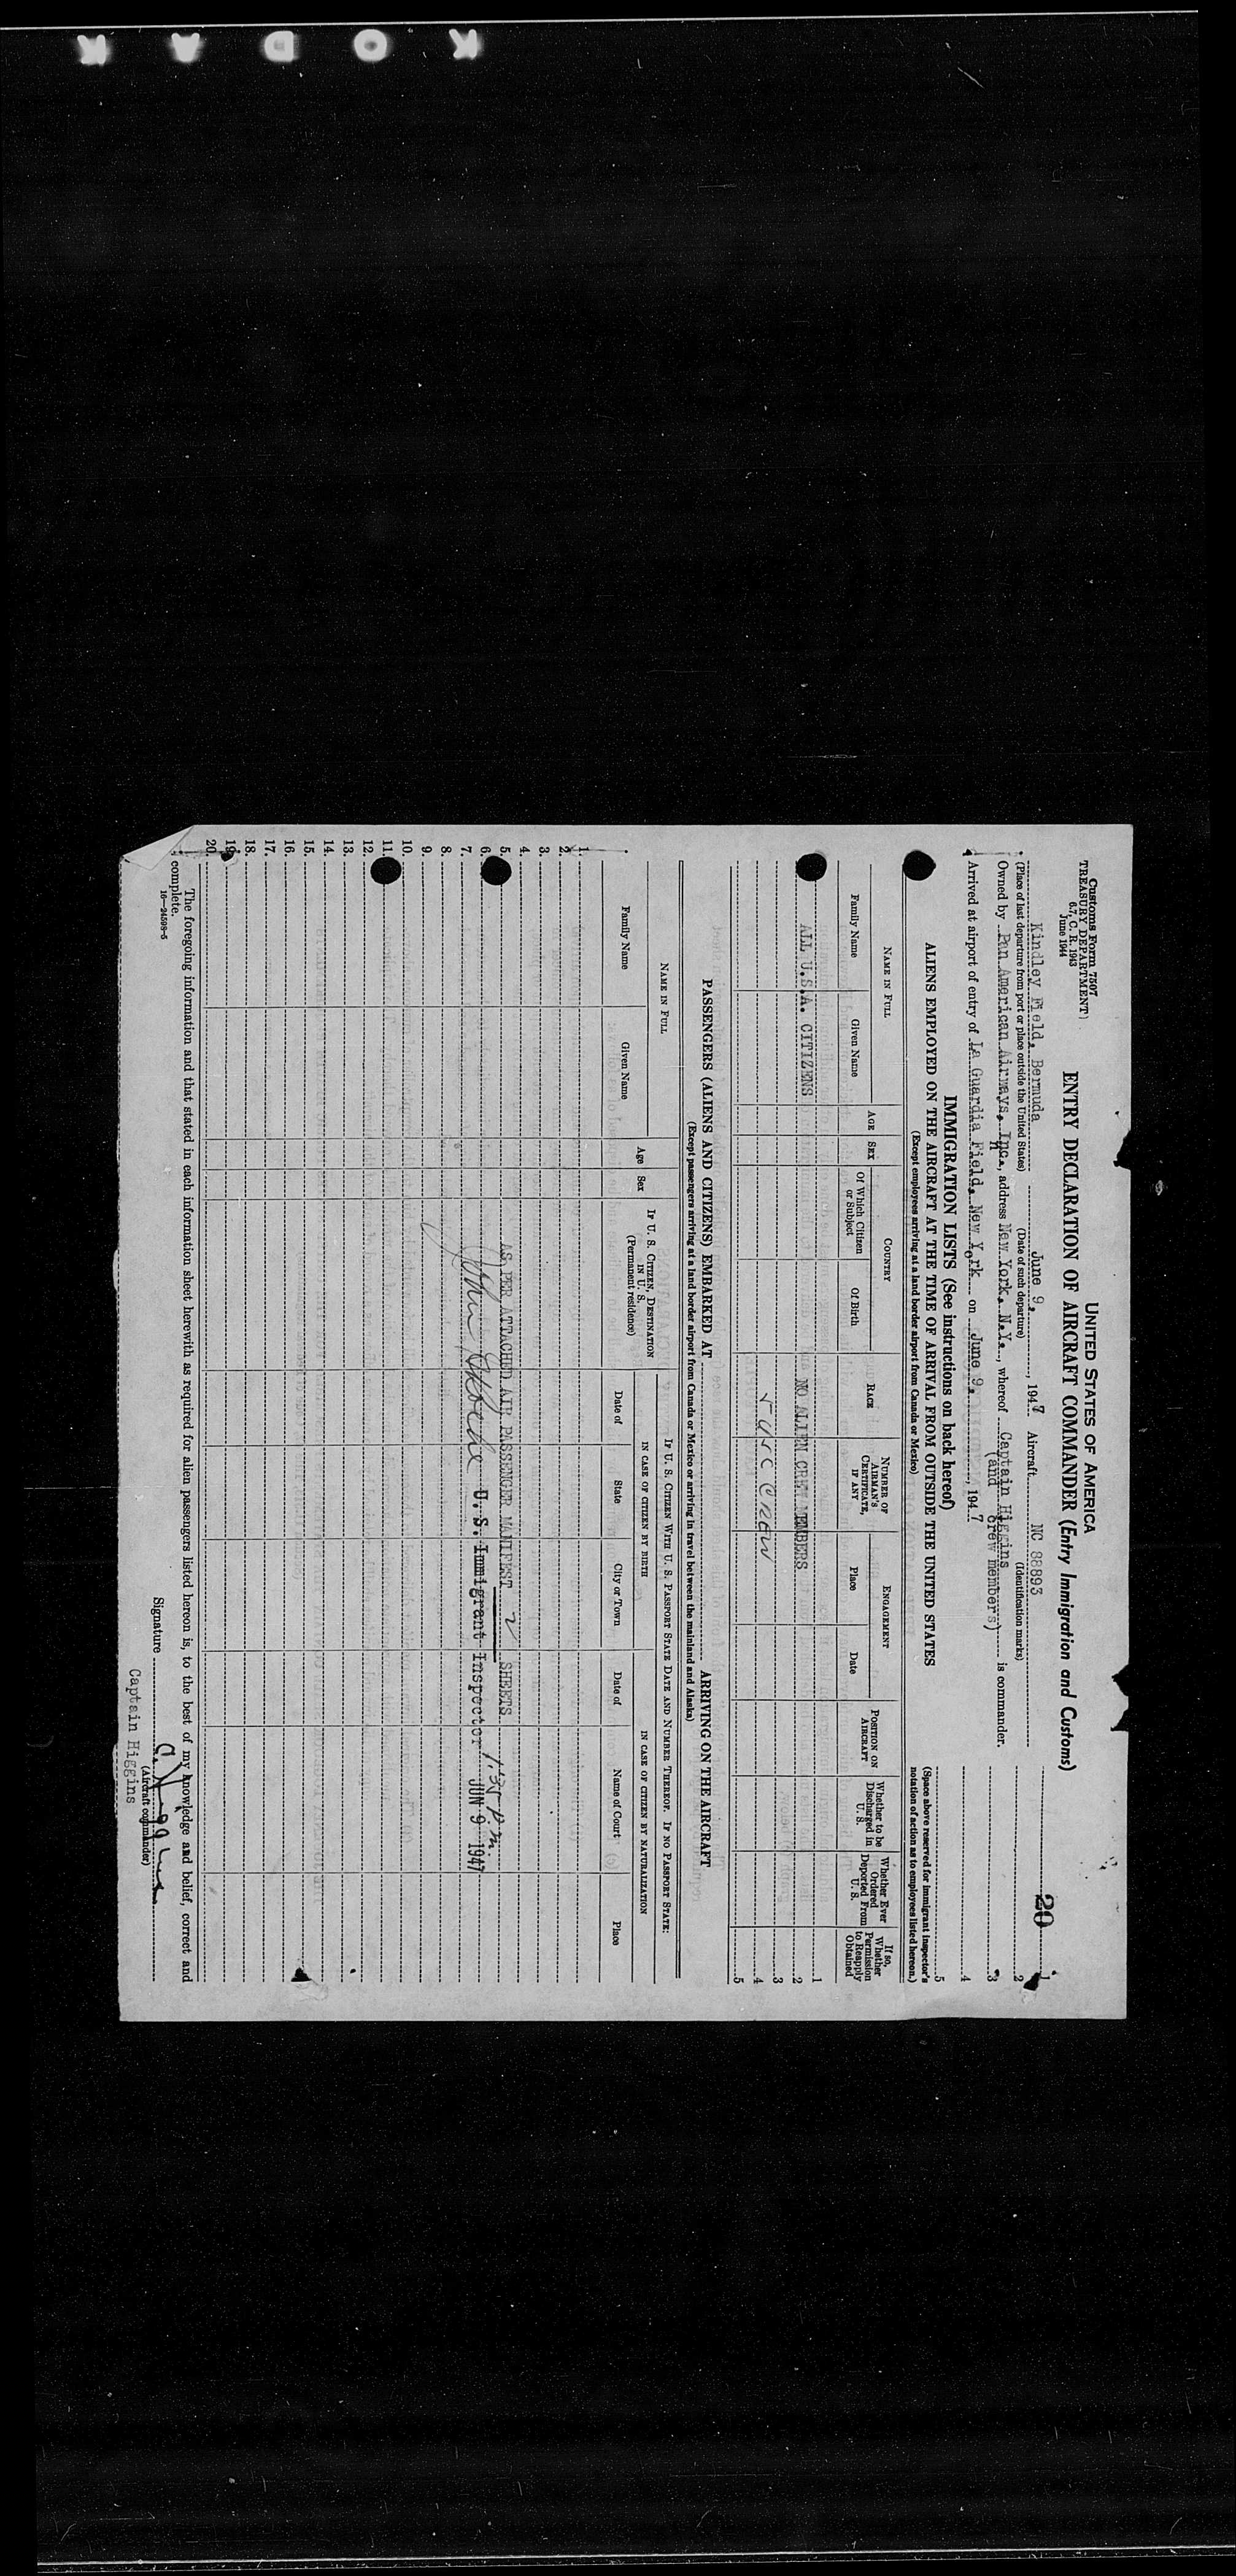 KODAK
Customs Form 7507
TREASURY DEPARTMENT
6.7, C. R. 1943
June 1944
UNITED STATES OF AMERICA
ENTRY DECLARATION OF AIRCRAFT COMMANDER (Entry Immigration and Customs)
20
Kindley Field, Bermuda June 9, 1947 Aircraft NC 88893
(Place of last departure from port or place outside the United States) (Date of such departure) (Identification marks)
Owned by Pan American Airways, Inc., address New York, N.Y., whereof Captain Higgins is commander.
(and crew members)
Arrived at airport of entry of La Guardia Field, New York on June 9, 1947
1
2
3
4
5
(Space above reserved for Immigrant Inspector's notation of action as to employees listed hereon.)
IMMIGRATION LISTS (See instructions on back hereof)
ALIENS EMPLOYED ON THE AIRCRAFT AT THE TIME OF ARRIVAL FROM OUTSIDE THE UNITED STATES
(Except employees arriving at a land border airport from Canada or Mexico)
NAME IN FULL
Family Name
Given Name
AGE
SEX
COUNTRY
Of Which Citizen or Subject
Of Birth
RACE
NUMBER OF AIRMAN'S CERTIFICATE, IF ANY
ENGAGEMENT
Place
Date
POSITION ON AIRCRAFT
Whether to be Discharged in U. S.
Whether Ever Ordered Deported From U. S.
If so, Whether Permission to Reapply Obtained
1
ALL U.S.A. CITIZENS NO ALIEN CREW MEMBERS 2
3
5 USC CREW 4
5
PASSENGERS (ALIENS AND CITIZENS) EMBARKED AT ARRIVING ON THE AIRCRAFT
(Except passengers arriving at a land border airport from Canada or Mexico or arriving in travel between the mainland and Alaska)
NAME IN FULL
Family Name
Given Name
Age
Sex
IF U. S. CITIZEN, DESTINATION IN U. S.
(Permanent residence)
IF U. S. CITIZEN WITH U. S. PASSPORT STATE DATE AND NUMBER THEREOF. IF NO PASSPORT STATE:
IN CASE OF CITIZEN BY BIRTH
Date of
State
City or Town
IN CASE OF CITIZEN BY NATURALIZATION
Date of
Name of Court
Place
1.
2.
3.
4.
5. AS PER ATTACHED AIR PASSENGER MANIFEST 2 SHEETS
6. 1:35 p.m.
7. John U. S. Immigrant Inspector JUN 9 1947
8.
9.
10.
11.
12.
13.
14.
15.
16.
17.
18.
19.
20.
The foregoing information and that stated in each information sheet herewith as required for alien passengers listed hereon is, to the best of my knowledge and belief, correct and
complete.
16—24598-5
Signature
(Aircraft commander)
Captain Higgins